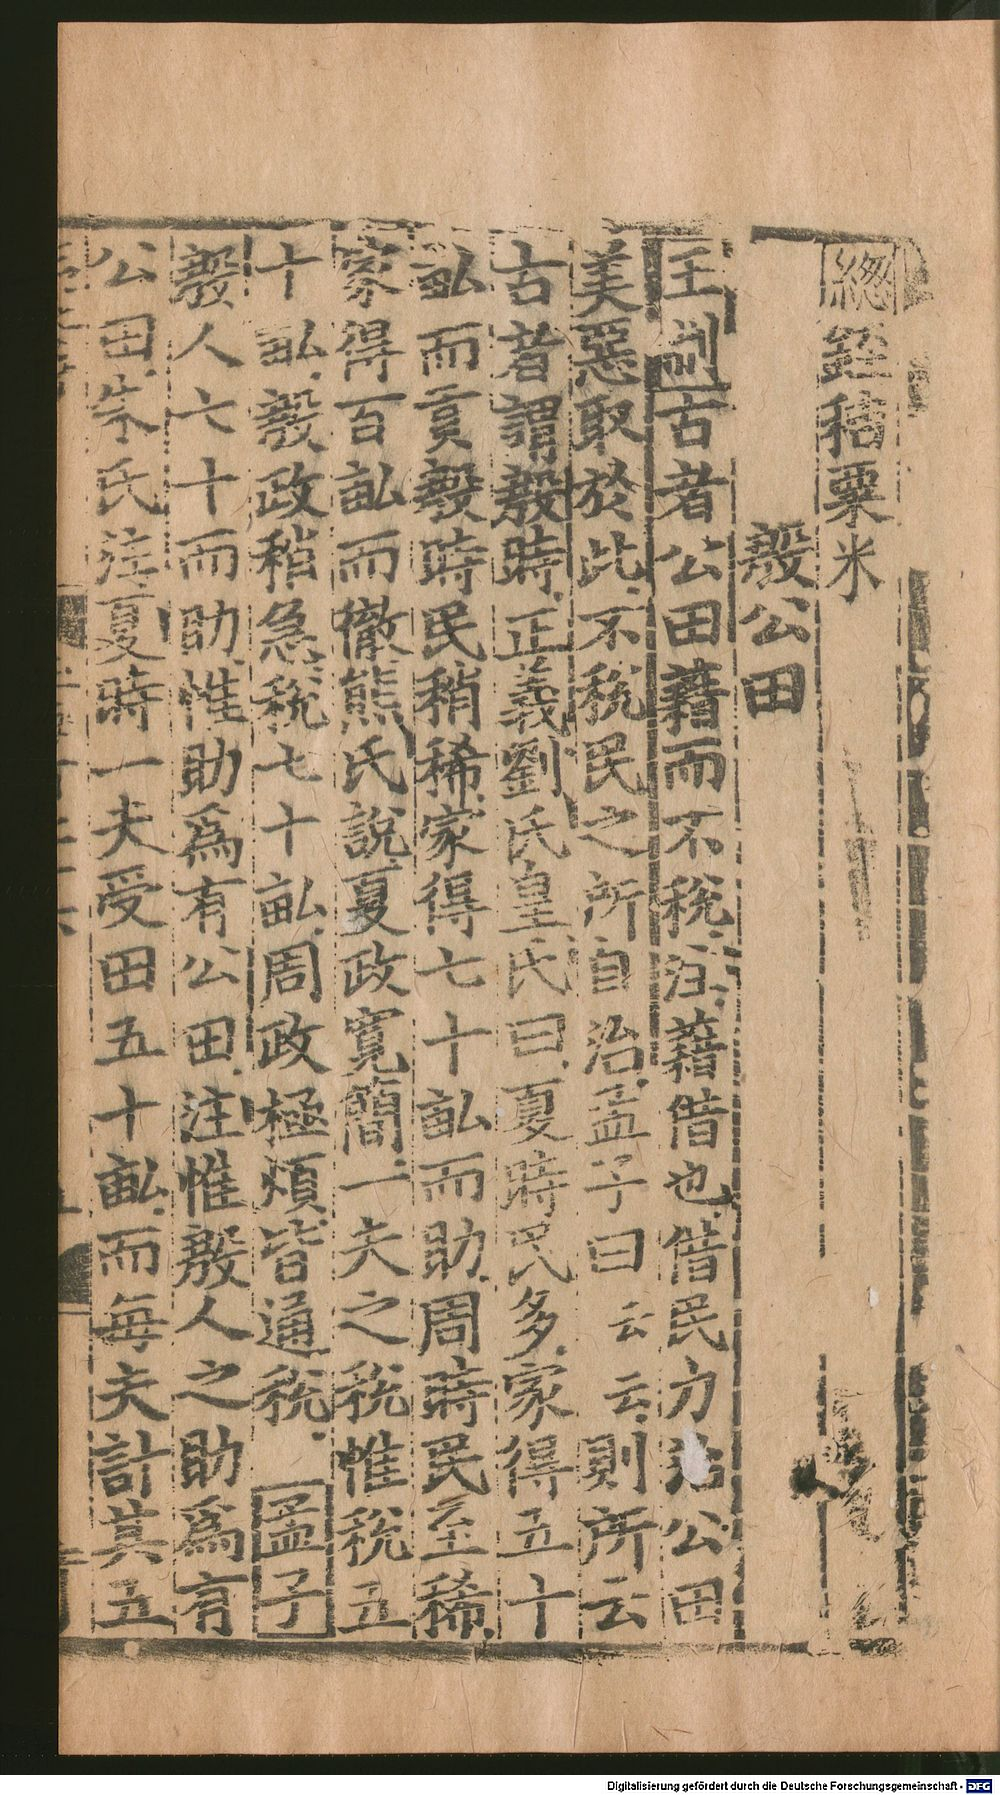 緫銍秸粟米
殷公田
王制古者公田藉而不稅注藉借也借民力治公田
美惡取於此不稅民之所自治孟子曰云云則所云
古者謂殷時正義劉氏皇氏曰夏時民多家得五十
畆而貢殷時民稍稀家得七十畆而助周時民至稀
家得百畆而徹熊氏說夏政寬簡一夫之稅惟稅五
十畆殷政稍急稅七十畆周政極煩皆通稅 孟子
殷人七十而助惟助爲有公田注惟殷人之助爲有
公田朱氏注夏時一夫受田五十畆而每夫計其五
Digitalisierung gefördert durch die Deutsche Forschungsgemeinschaft - DFG